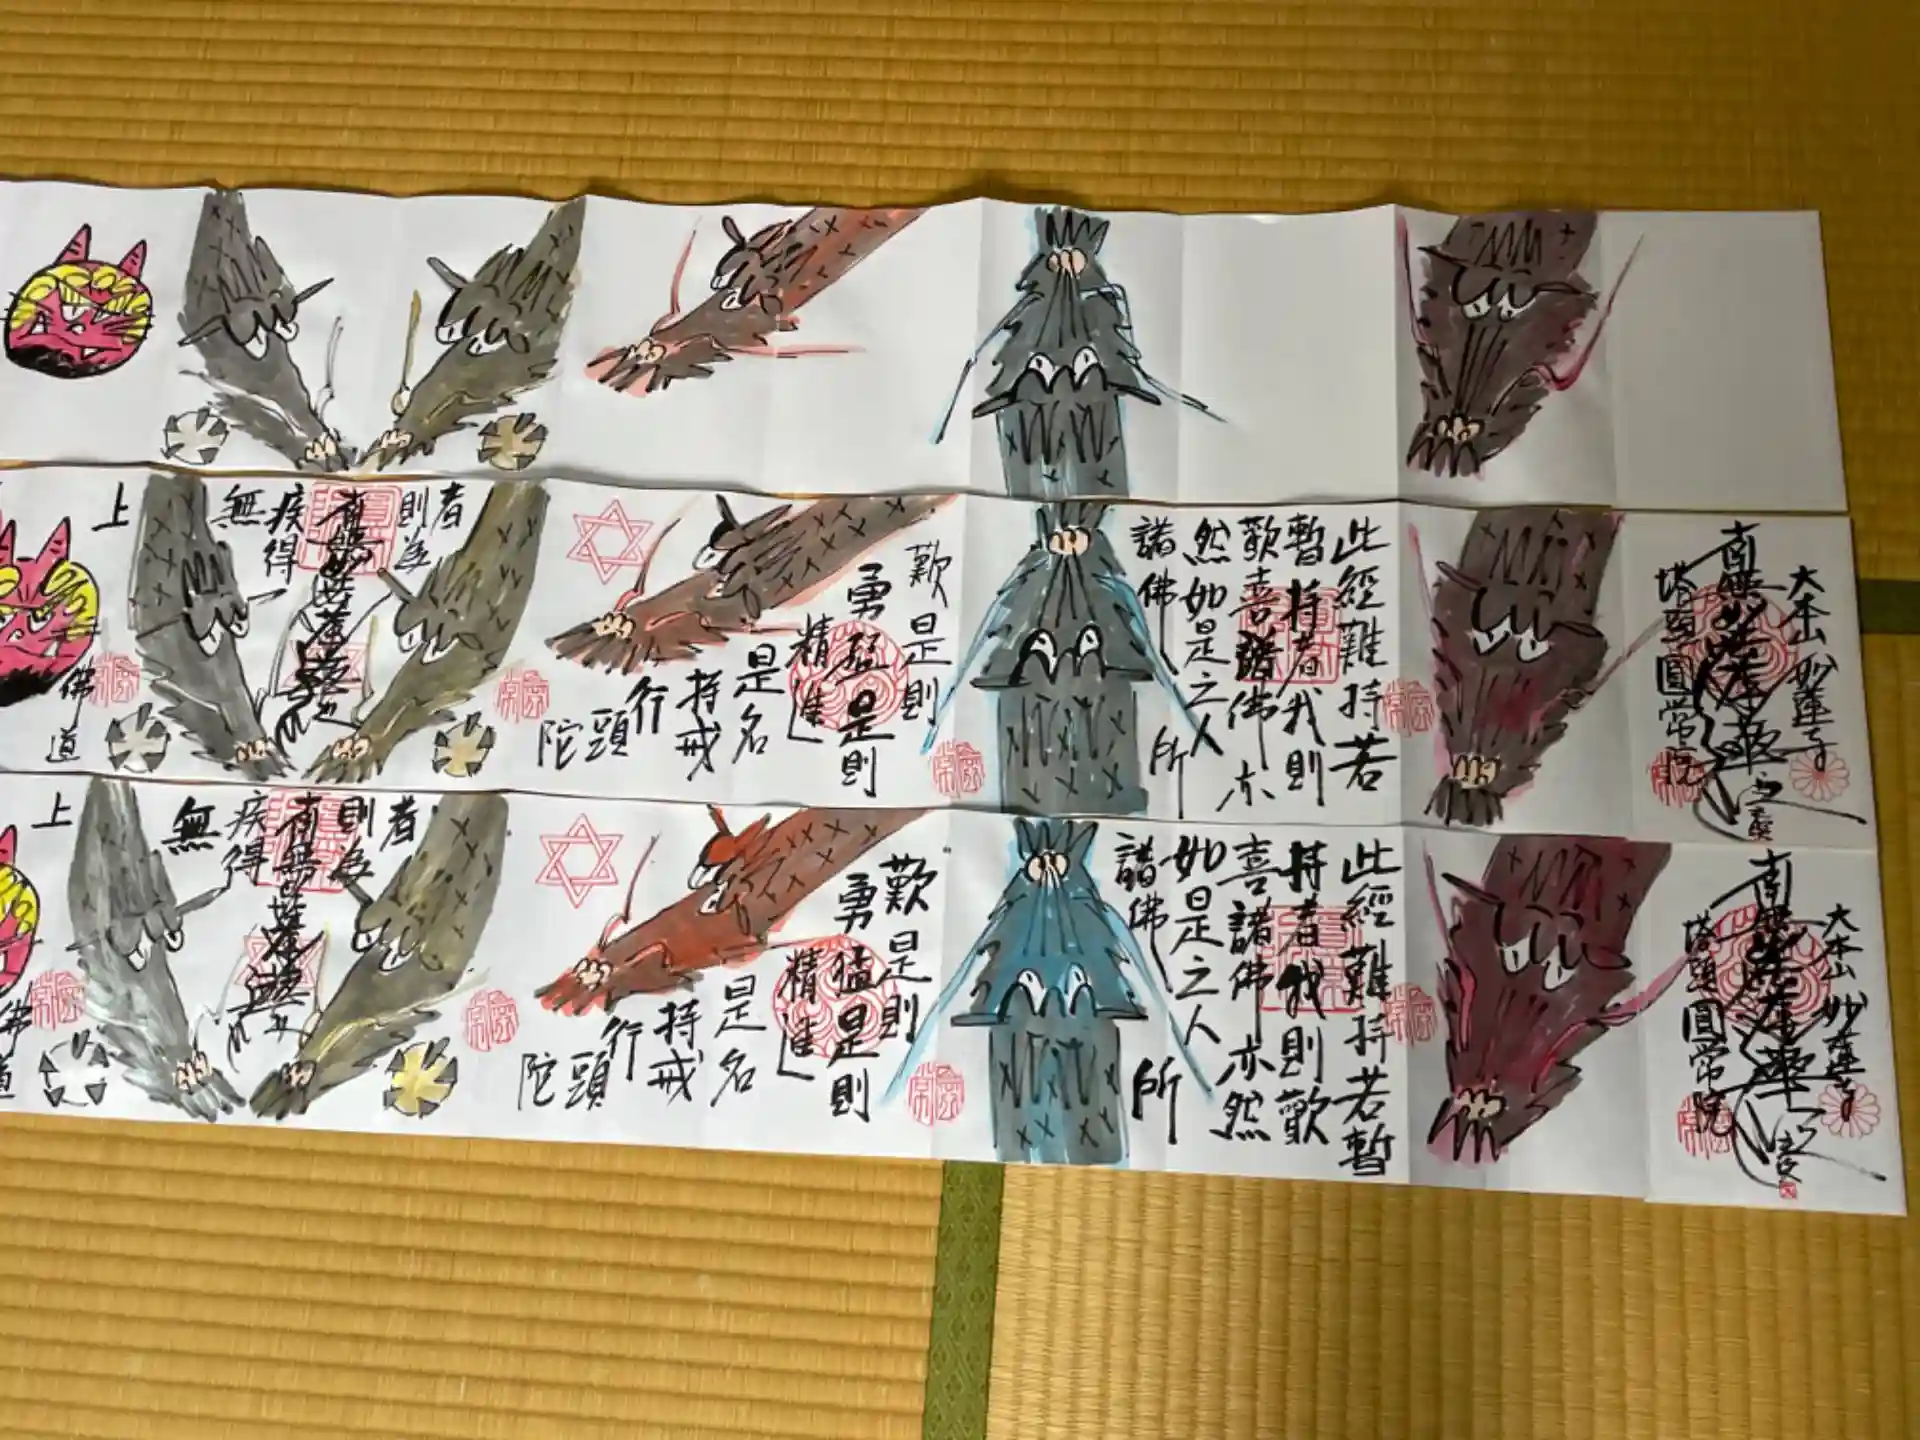 大本山妙蓮寺
南無妙法蓮華経
塔頭圓常院
此經難持若
暫持者我則
歡喜諸佛亦
然如是之人
諸佛
所
歎是則
勇猛是則
精進
是名
持戒
行
頭
陀
者
則為
南無妙法蓮華経
疾得
無
上
佛
道
大本山妙蓮寺
南無妙法蓮華経
塔頭圓常院
此經難持若暫
持者我則歡
喜諸佛亦然
如是之人
諸佛
所
歎是則
勇猛是則
精進
是名
持戒
行
頭
陀
者
則為
南無妙法蓮華経
疾得
無
上
佛
道